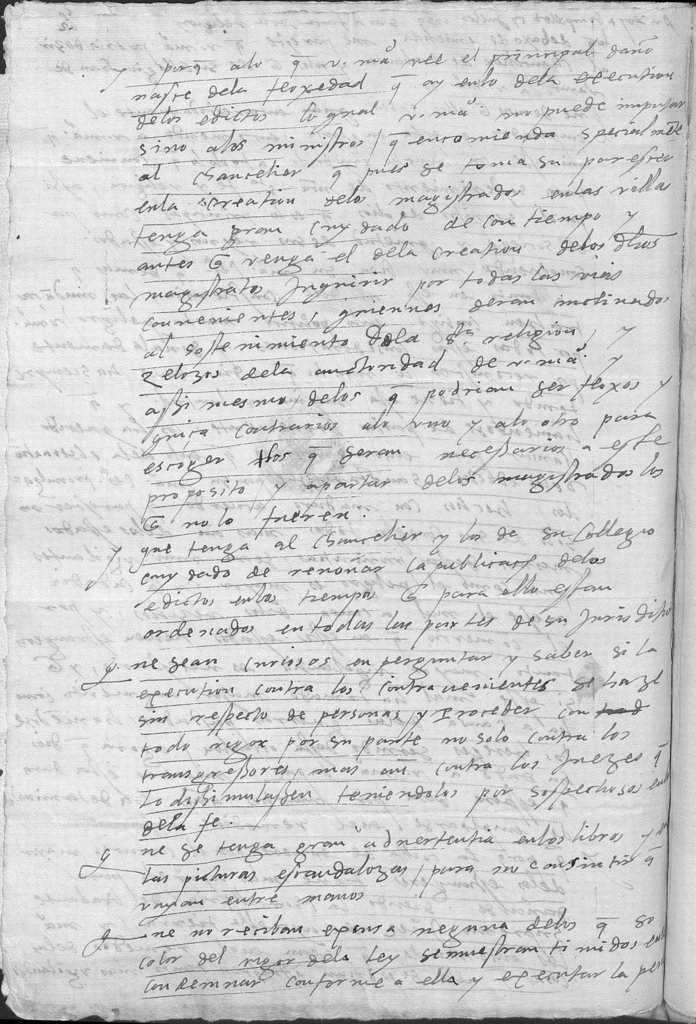 y porq̃ a lo q̃ v. maᵗ vee el principal daño
nasce dela floxedad q̃ ay enlo dela execution
delos edictos lo qual v. maᵗ no puede imputar
sino alos ministros / q̃ encomienda specialmẽte
al chancelier q̃ pues se toma su parescer
enla creation delos magistrados enlas villas
tenga gran cuydado de con tiempo y
antes q̃ venga el dela creation delos dhos
magistrados Inquirir por todas las vias
convenientes, quienes seran inclinados
al sostenimiento dela sᵗᵃ religion, y
zelozos dela auctoridad de v. maᵗ. y
assi mesmo delos q̃ podrian ser floxos y
quiça contrarios alo uno y alo otro para
escoger los q̃ seran necessarios a este
proposito y apartar delos magistrados los
q̃ no lo fueren.
y que tenga al chancelier y los de su Collegio
cuydado de renovar la publicacⁿ delos
edictos enlos tiempos q̃ para ello estan
ordenados en todas las partes de su Jurisdiⁿ
q̃ ne sean curiosos en perguntar y saber si la
execution contra los contravenientes se haze
sin respecto de personas y proceder con
todo rigor por su parte no solo contra los
transgressores, mas aun contra los Juezes q̃
lo dissimulassen teniendolos por sospechosos en lo
dela fe.
q̃ ne se tenga gran advertentia enlos libros y en
las picturas escandalozas / para no consintir q̃
vayan entre manos
q̃ ne no reciban expensa neguna delos q̃ so
color del rigor dela ley se muestran timidos en lo
condemnar conforme a ella y executar la pena